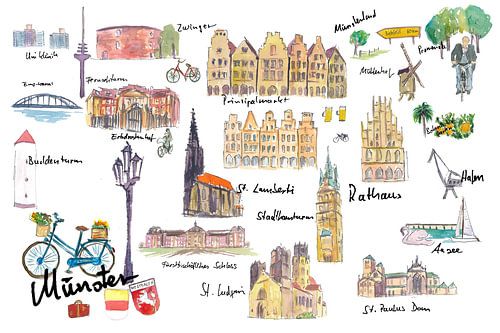 Uniklinik
Zwinger
Münsterland
Promenade
Fernsehturm
Mühlenhof
Prinzipalmarkt
Erbdrostenhof
Buddenturm
St. Lamberti
Rathaus
Hafen
Stadthausturm
Aasee
Fürstbischöfliches Schloss
Münster
St. Ludgeri
St. Paulus Dom